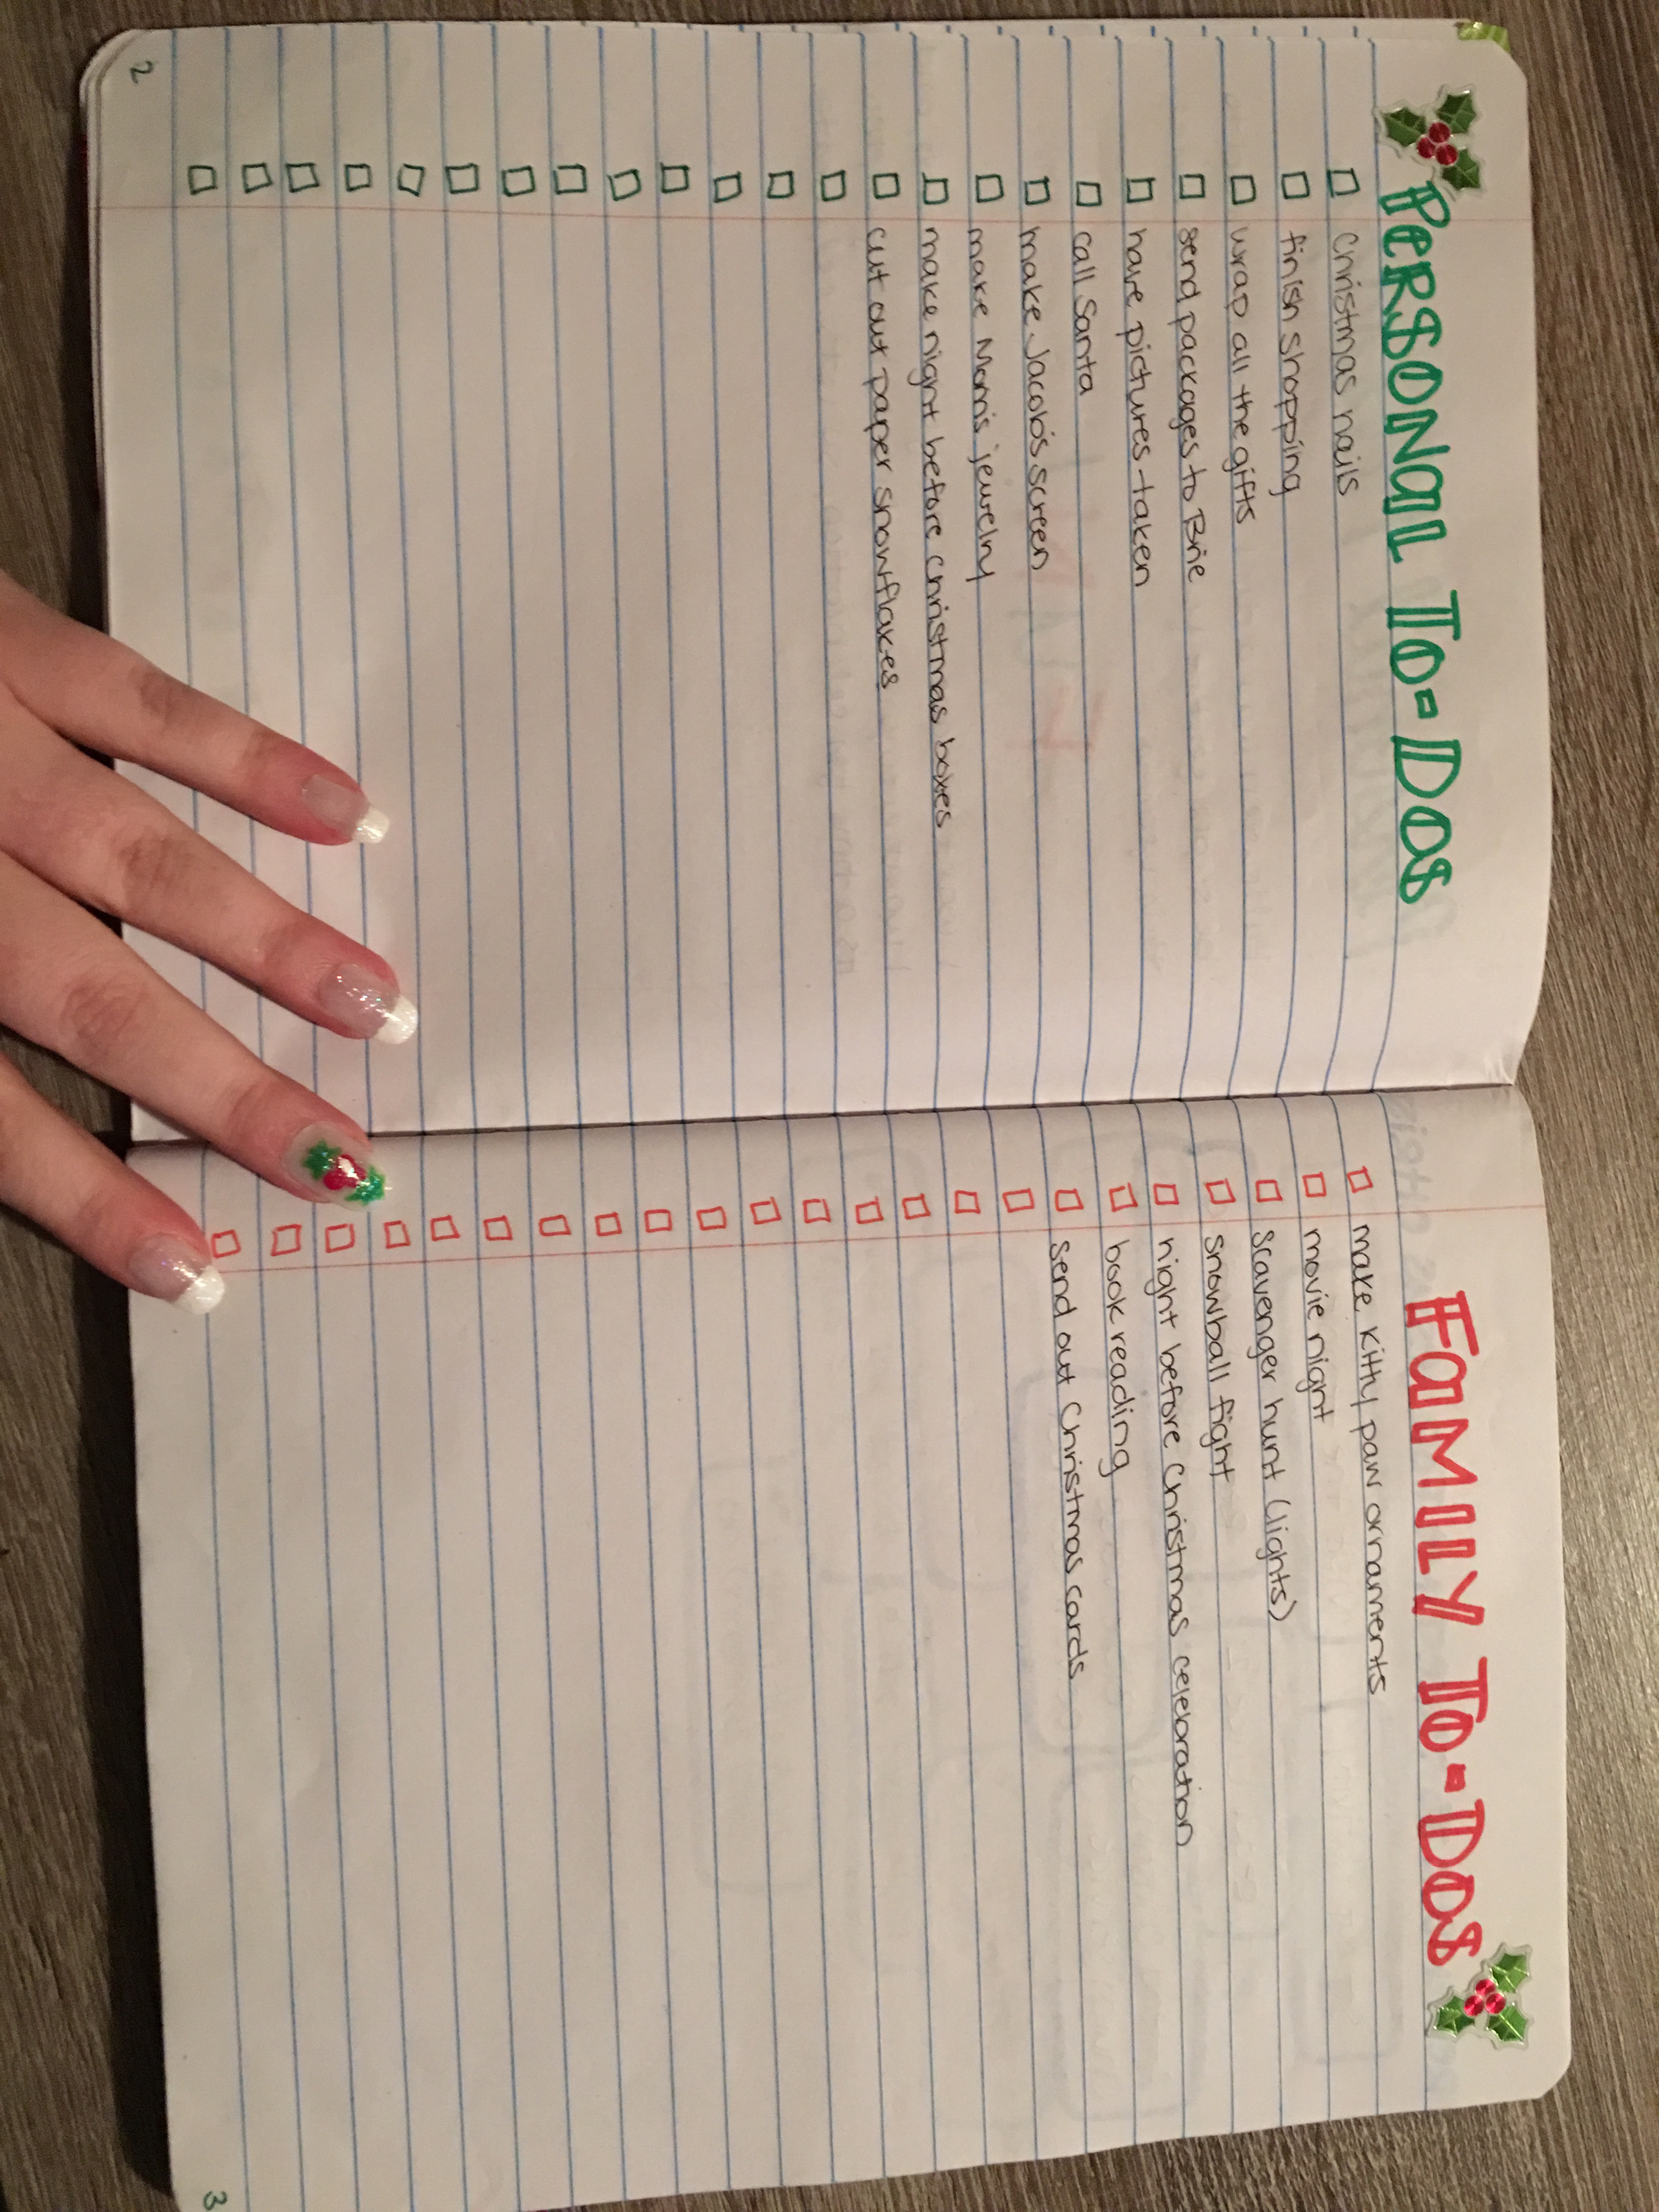 PERSONAL TO-DOS
Christmas nails
finish shopping
wrap all the gifts
send packages to Brie
have pictures taken
call Santa
make Jacob's screen
make Mom's jewelry
make night before Christmas boxes
cut out paper snowflakes
2
FAMILY TO-DOS
make kitty paw ornaments
movie night
scavenger hunt (lights)
snowball fight
night before Christmas celebration
book reading
send out Christmas cards
3